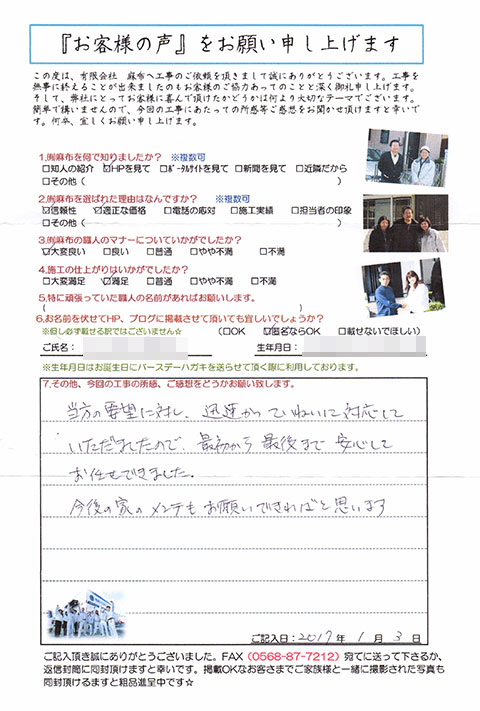 『お客様の声』をお願い申し上げます
この度は、有限会社 麻布へ工事のご依頼を頂きまして誠にありがとうございます。工事を
無事に終えることが出来ましたのもお客様のご協力あってのことと深く御礼申し上げます。
そして、弊社にとってお客様に喜んで頂けたかどうかは何より大切なテーマでございます。
簡単で構いませんので、今回の工事にあたっての所感等ご感想をお聞かせ頂けますと幸いで
す。何卒、宜しくお願い申し上げます。
1.㈲麻布を何で知りましたか? ※複数可
□知人の紹介 ☑HPを見て □ポータルサイトを見て □新聞を見て □近隣だから
□その他（ ）
2.㈲麻布を選ばれた理由はなんですか? ※複数可
☑信頼性 ☑適正な価格 □電話の応対 □施工実績 □担当者の印象
□その他（ ）
3.㈲麻布の職人のマナーについていかがでしたか?
☑大変良い □良い □普通 □やや不満 □不満
4.施工の仕上がりはいかがでしたか?
□大変満足 ☑満足 □普通 □やや不満 □不満
5.特に頑張っていた職人の名前があればお願いします。
（ ）
6.お名前を伏せてHP、ブログに掲載させて頂いても宜しいでしょうか?
※但し必ず載せる訳ではございません☆ （□OK ☑匿名ならOK □載せないでほしい）
ご氏名： 生年月日：
※生年月日はお誕生日にバースデーハガキを送らせて頂く際に利用しております。
7.その他、今回の工事の所感、ご感想をどうかお願い致します。
当方の要望に対し、迅速かつていねいに対応して
いただきましたので、最初から最後まで安心して
お任せできました。
今後の家のメンテもお願いできればと思います
ご記入日：2017年 1月 3日
ご記入頂き誠にありがとうございました。FAX（0568-87-7212）宛てに送って下さるか、
返信封筒に同封頂けますと幸いです。掲載OKなお客さまでご家族様と一緒に撮影された写真も
同封頂けるますと粗品進呈中です☆